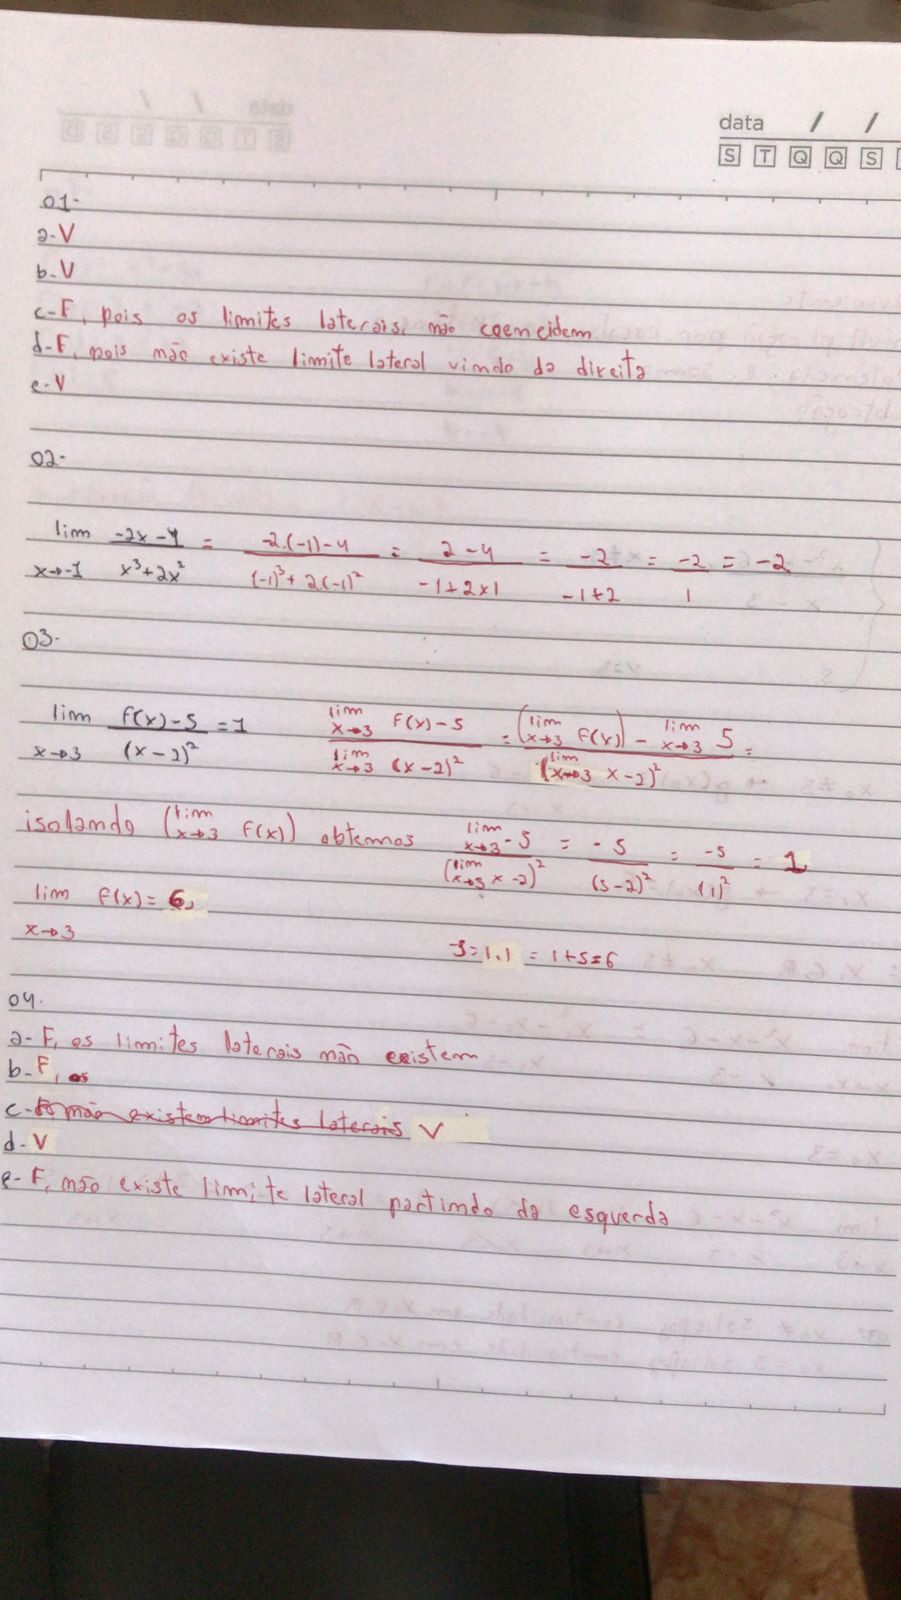 data / /
S T Q Q S
01-
a- V
b- V
c- F, pois os limites laterais não coencidem
d- F, pois não existe limite lateral vindo da direita
e- V
02-
lim x→-1 (-2x-4)/(x³+2x²) = (-2.(-1)-4)/((-1)³+2(-1)²) = (2-4)/(-1+2x1) = -2/(-1+2) = -2/1 = -2
03-
lim x→3 (f(x)-5)/(x-2)² = 1 (lim x→3 f(x)-5)/(lim x→3 (x-2)²) = ((lim x→3 f(x)) - lim x→3 5)/(lim x→3 x-2)² =
isolando (lim x→3 f(x)) obtemos (lim x→3 -5)/(lim x→3 x-2)² = -5/(3-2)² = -5/(1)² = 1
lim x→3 f(x) = 6,
-5=1.1 = 1+5=6
04.
a- F, os limites laterais não existem
b- F, os
c- não existem limites laterais V
d- V
e- F, não existe limite lateral partindo da esquerda